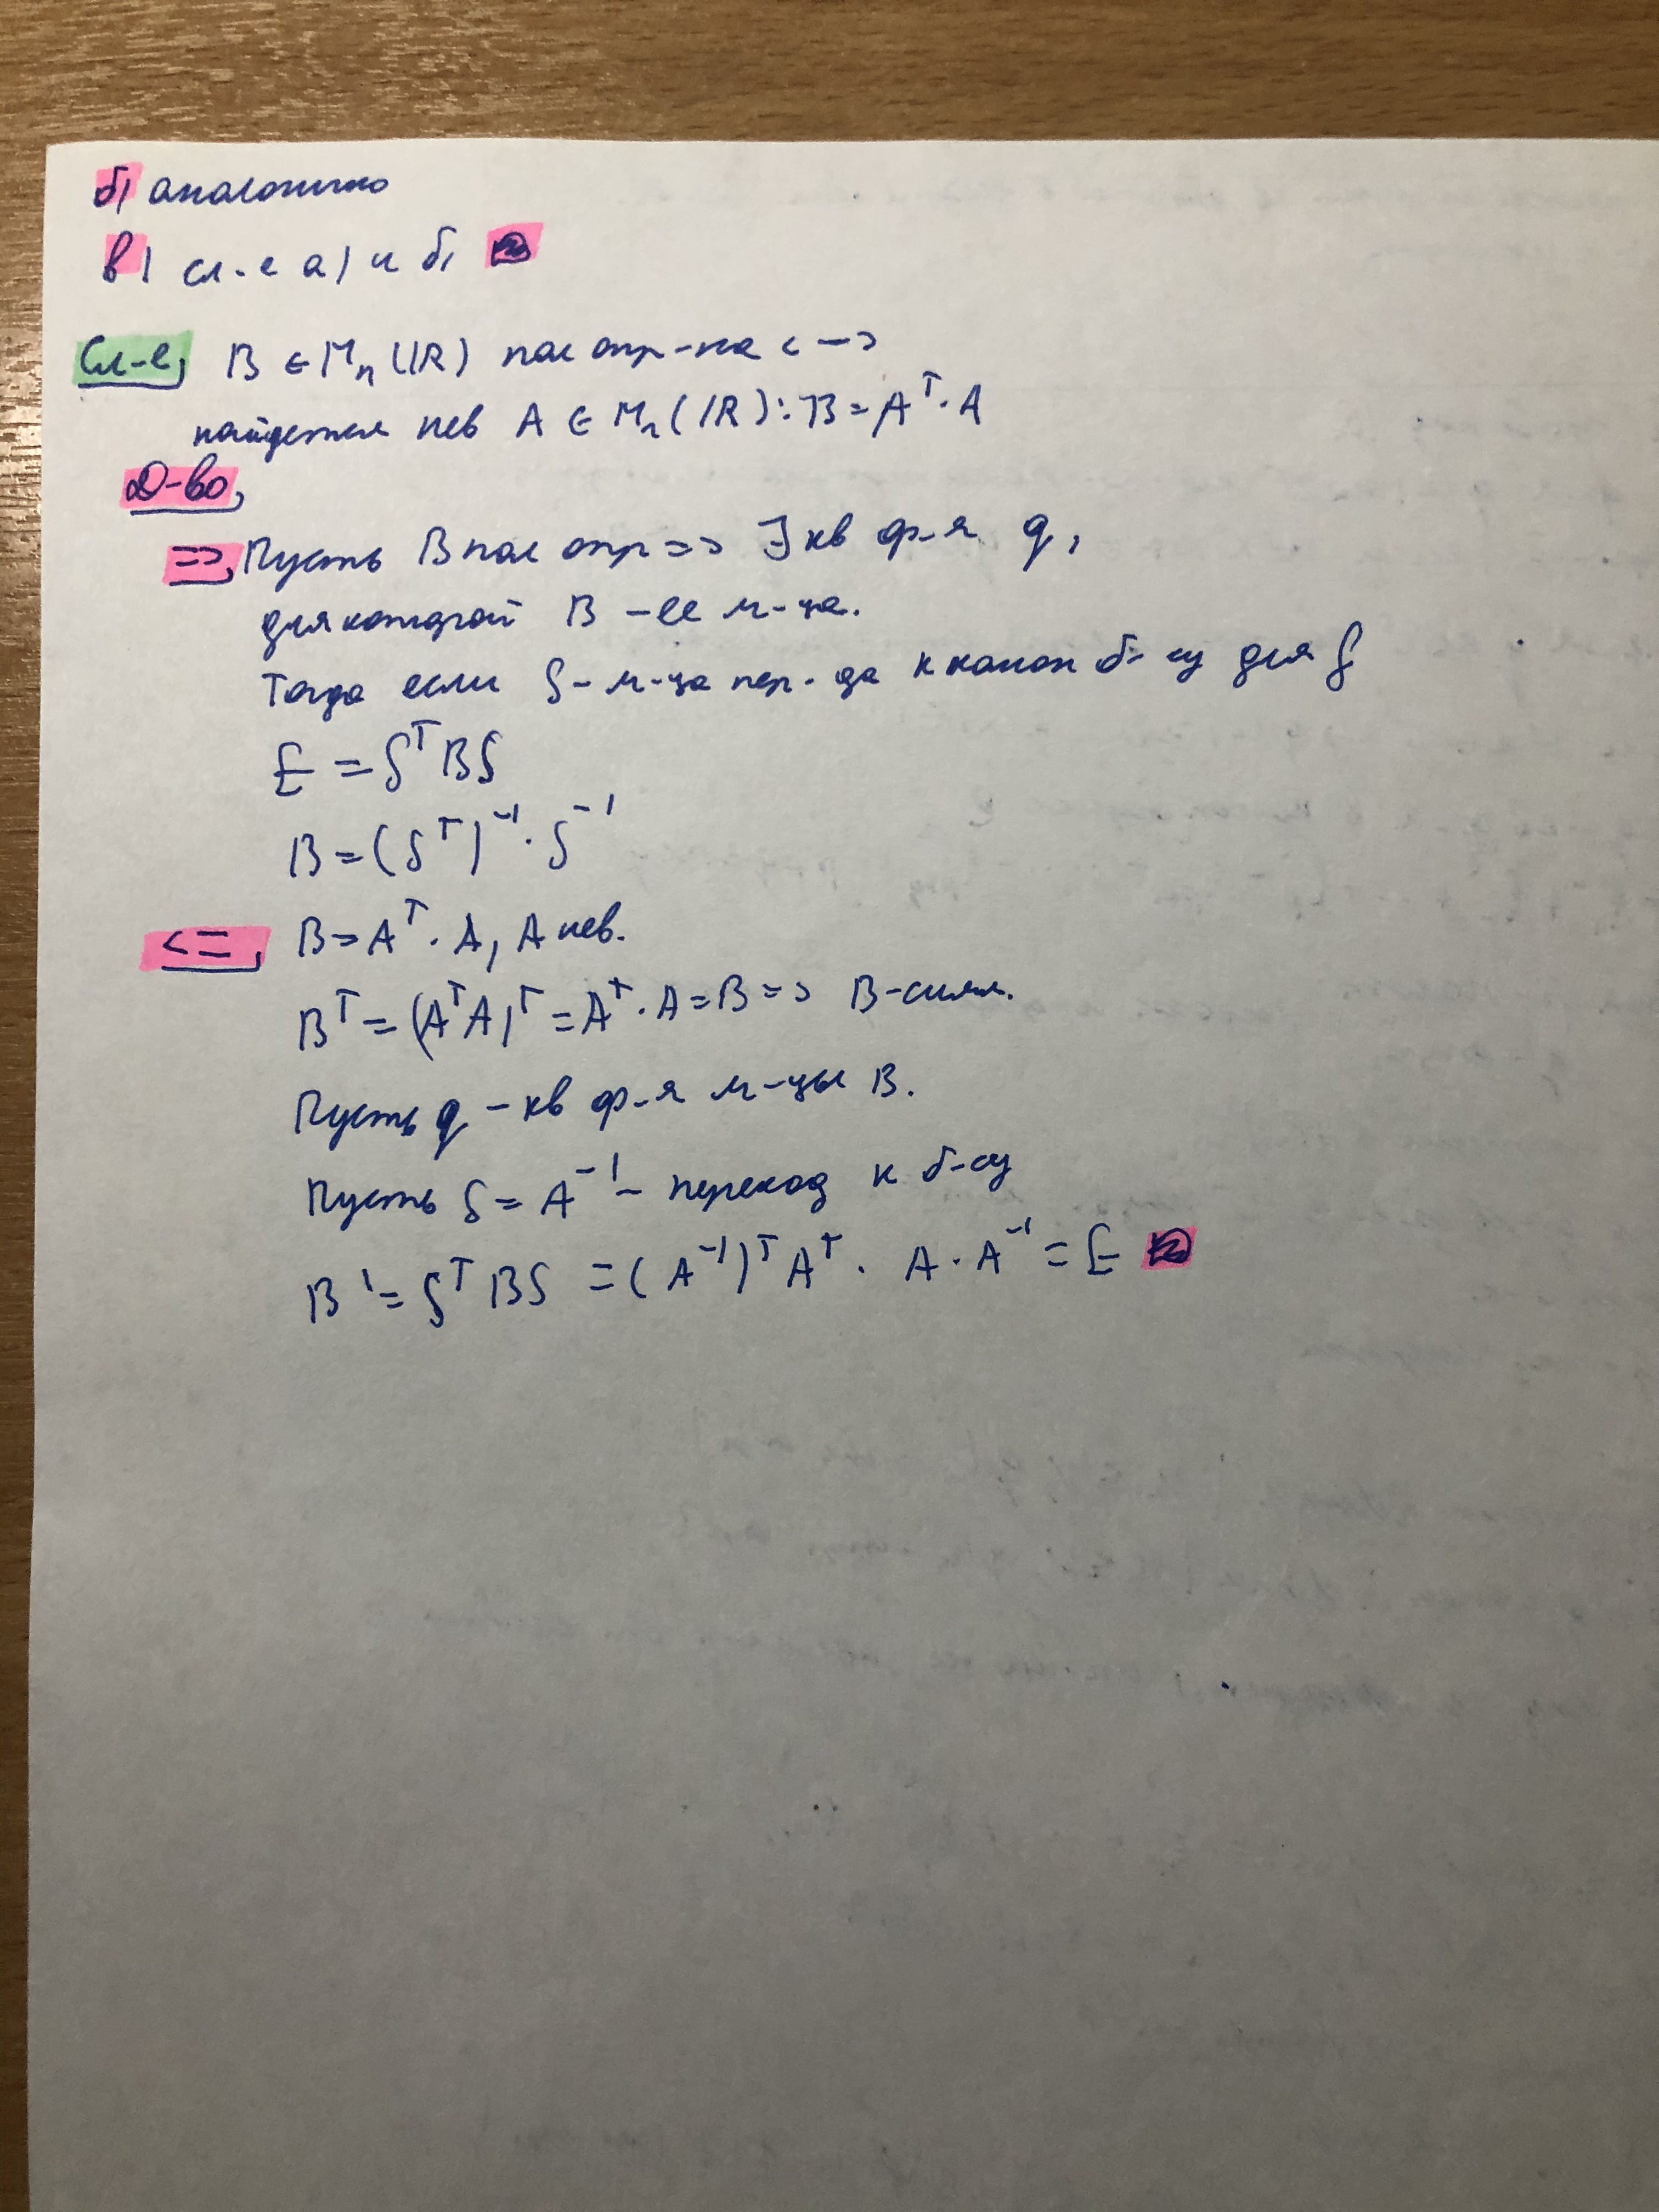 б) аналогично
в) сл-е а) и б)
Сл-е, B ∈ Mn(IR) пол опр-на <—>
найдется нев A ∈ Mn(IR): B = A^T · A
Д-во,
=>, Пусть B пол опр => ∃ кв ф-я q,
для которой B - ее м-ца.
Тогда если S - м-ца пер-да к канон б-су для f
E = S^T B S
B = (S^T)^-1 · S^-1
<=, B = A^T · A, A нев.
B^T = (A^T A)^T = A^T · A = B => B - симм.
Пусть q - кв ф-я м-цы B.
Пусть S = A^-1 - переход к б-су
B' = S^T B S = (A^-1)^T A^T · A · A^-1 = E